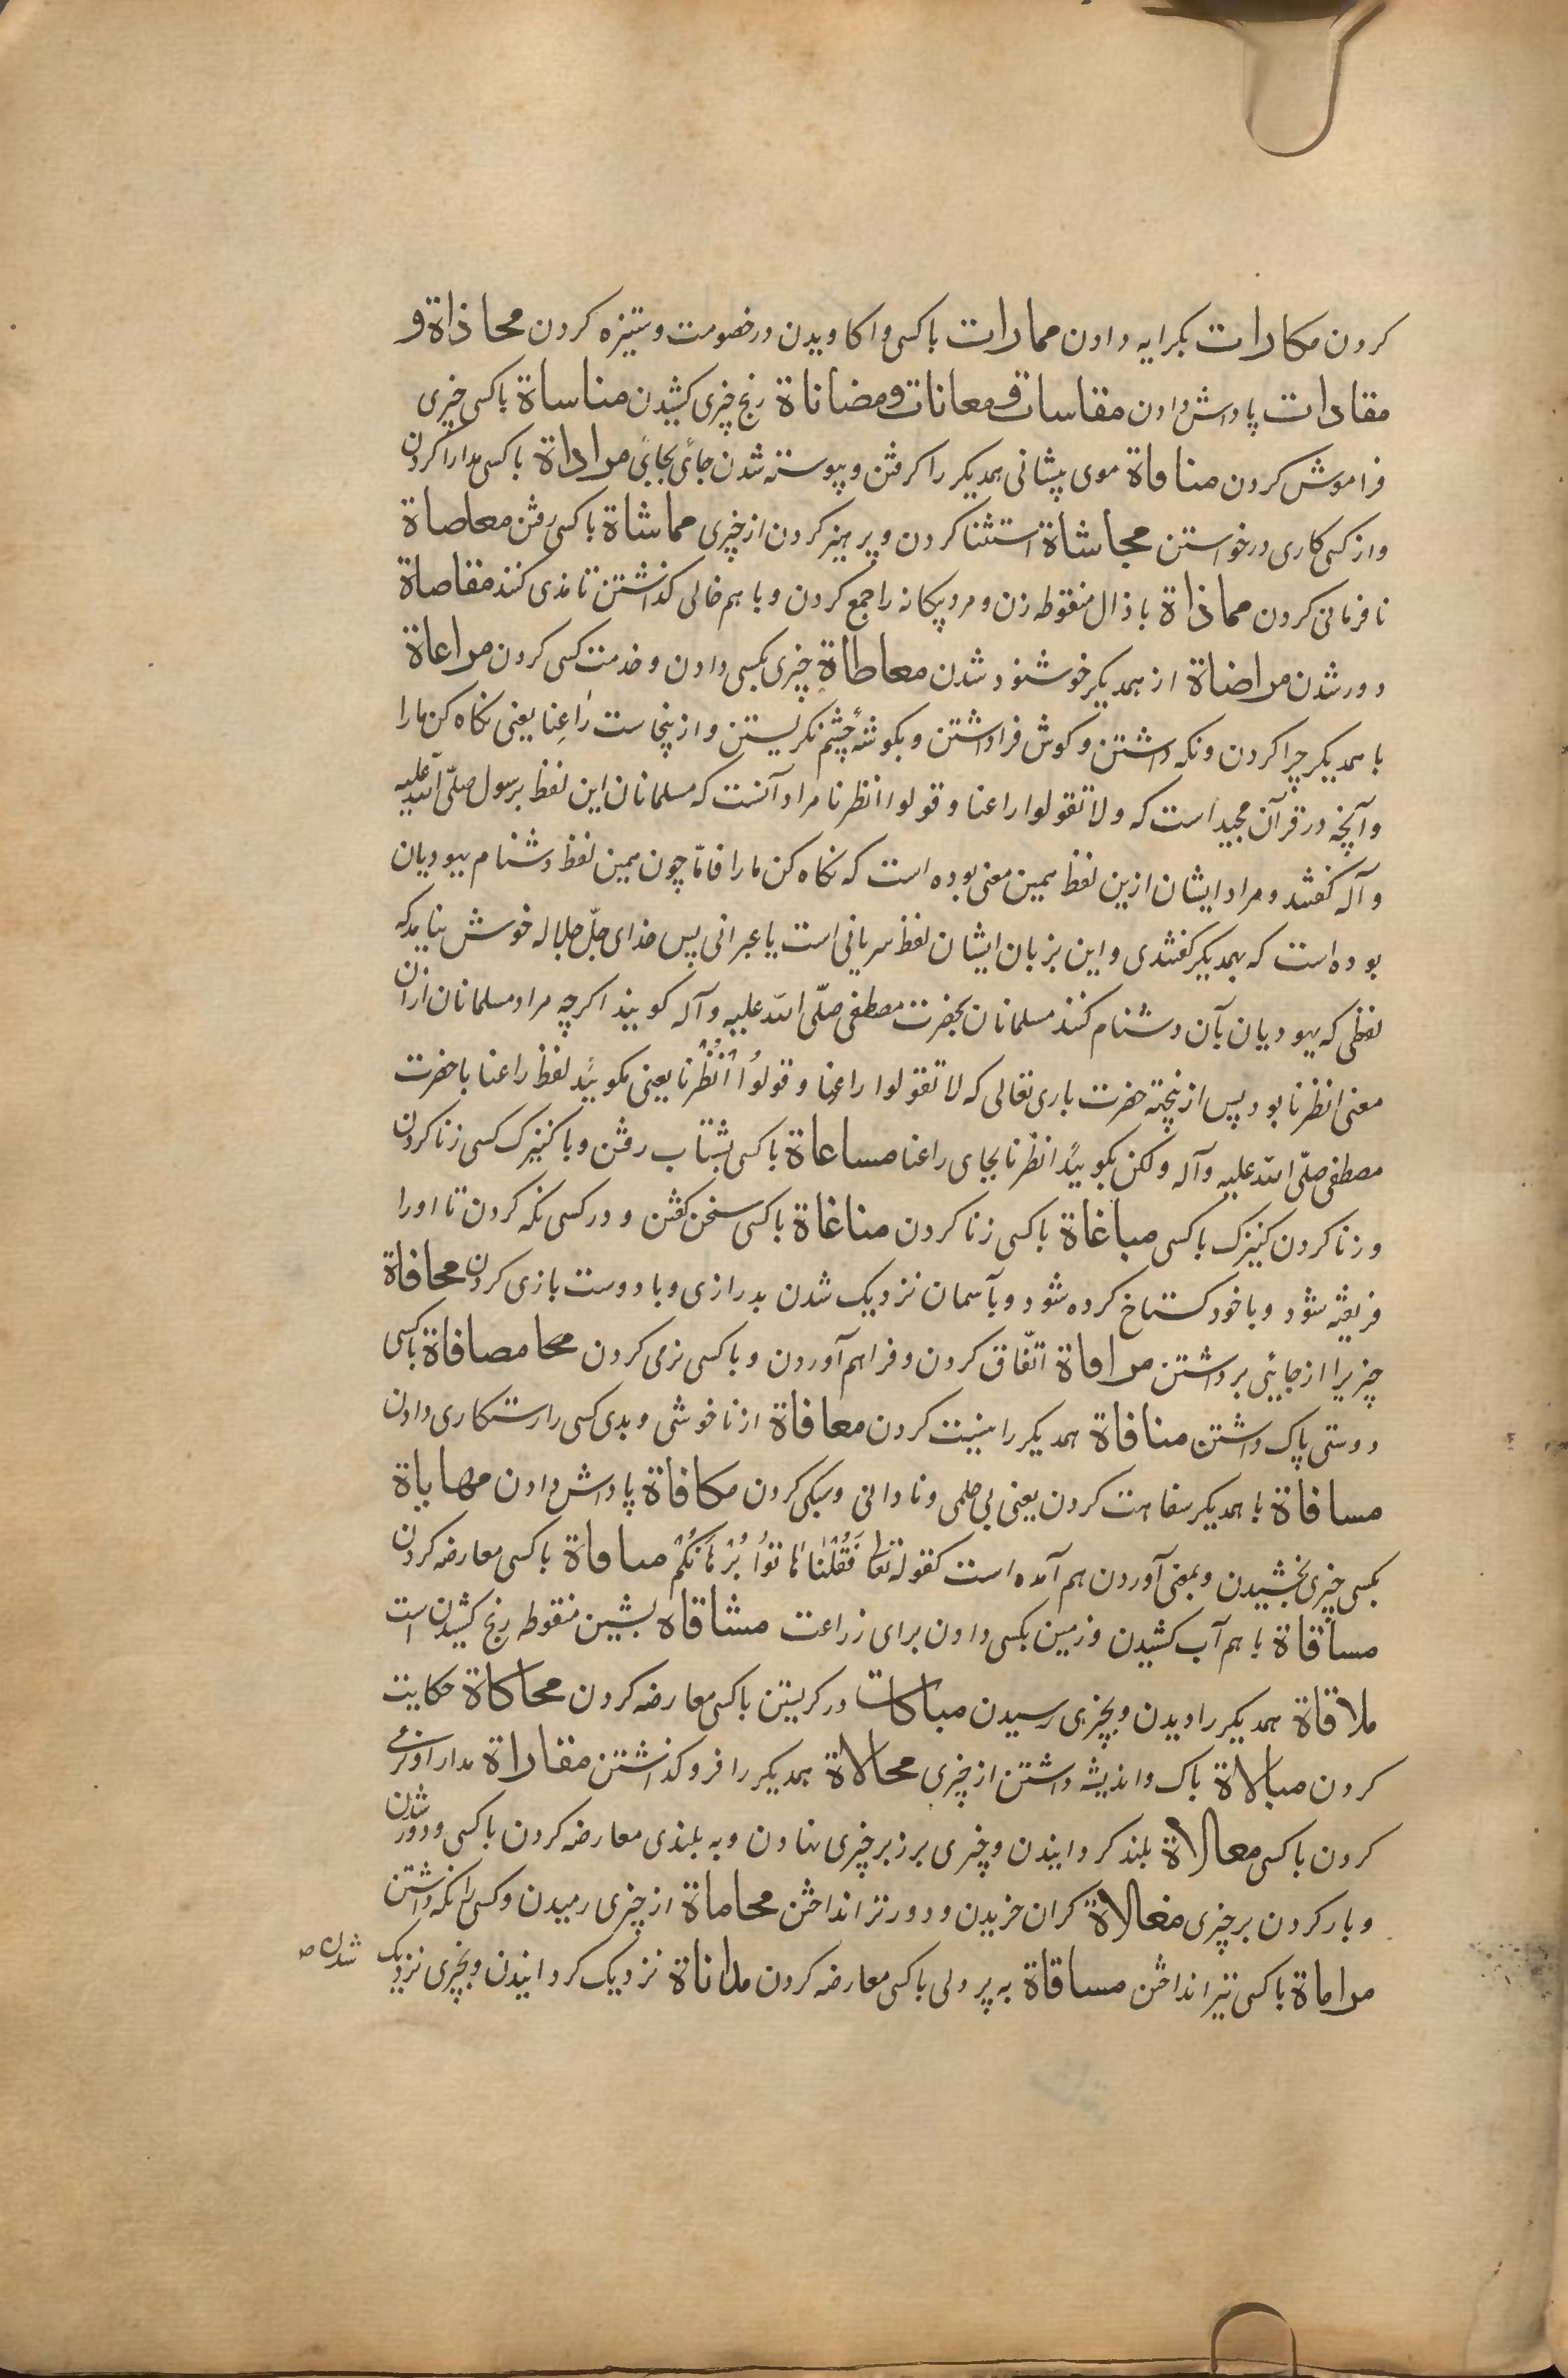 کردن مکارات بکرایه دادن ممارات باکسی واکاویدن در خصومت و ستیزه کردن محاذاة و
مقادات پاداش دادن مقاسات و معانات و مضاناة رنج چیزی کشیدن مناساة باکسی چیزی
فراموش کردن مناصاة موی پیشانی همدیکر را کرفتن و پیوسته شدن جائی بجائی مراداة باکسی مدارا کردن
و از کسی کاری درخواستن محاشاة استثنا کردن و پرهیز کردن از چیزی مماشاة باکسی رفتن معاصاة
نافرمانی کردن مماذاة با ذال منقوطه زن و مرد بیکانه را جمع کردن و با هم خالی کذاشتن تا مذی کنند مقاصاة
دور شدن مراضاة از همدیکر خوشنود شدن معاطاة چیزی بکسی دادن و خدمت کسی کردن مراعاة
با همدیکر چرا کردن و نکه داشتن و کوش فرا داشتن و بکوشهٔ چشم نکریستن و ازینجاست راعِنا یعنی نکاه کن ما را
و آنچه در قرآن مجید است که و لا تقولوا راعنا و قولوا انظرنا مراد آنست که مسلمانان این لفظ برسول صلّی الله علیه
و آله کفتند و مراد ایشان ازین لفظ همین معنی بوده است که نکاه کن ما را فامّا چون همین لفظ دشنام یهودیان
بوده است که بهمدیکر کفتندی و این بزبان ایشان لفظ سریانی است یا عبرانی پس خدای جلّ جلاله خوش نیامد که
لفظی که یهودیان بآن دشنام کنند مسلمانان بحضرت مصطفی صلّی الله علیه و آله کویند اکرچه مراد مسلمانان ازان
معنی انظرنا بود پس ازینجهة حضرت باری تعالی که لا تقولوا راعنا و قولوُا انْظُرْنا یعنی مکوئید لفظ راعنا با حضرت
مصطفی صلّی الله علیه و آله و لکن بکوئید انظرنا بجای راعنا مساعاة باکسی بشتاب رفتن و با کنیزک کسی زنا کردن
و زنا کردن کنیزک باکسی مباغاة باکسی زنا کردن مناغاة باکسی سخن کفتن و در کسی نکه کردن تا او را
فریفته شود و با خود کستاخ کرده شود و بآسمان نزدیک شدن بدرازی و با دوست بازی کردن محافاة
چیز یرا از جائی برداشتن مرافاة اتّفاق کردن و فراهم آوردن و باکسی نرمی کردن محا مصافاة باکسی
دوستی پاک داشتن منافاة همدیکر را نیست کردن معافاة از ناخوشی و بدی کسی را رستکاری دادن
مسافاة با همدیکر سفاهت کردن یعنی بی حلمی و نادانی و سبکی کردن مکافاة پاداش دادن مهاباة
بکسی چیزی بخشیدن و بمعنی آوردن هم آمده است کقوله تعا فَقُلْنا هٰاتوُا بُرْهٰانَکُمْ مباقاة باکسی معارضه کردن
مساقاة با هم آب کشیدن و زمین بکسی دادن برای زراعت مشاقاه بشین منقوطه رنج کشیدن است
ملاقاة همدیکر را دیدن و بچیزی رسیدن مباکات در کریستن باکسی معارضه کردن محاکاة حکایت
کردن مبالاة باک و اندیشه داشتن از چیزی محالاة همدیکر را فرو کذاشتن مفاراة
کردن باکسی معالاة بلند کردانیدن و چیزی بر زبر چیزی نهادن و به بلندی معارضه کردن باکسی و دور شدن
و بار کردن بر چیزی مغالاة کران خریدن و دورتر انداختن محاماة از چیزی رمیدن و کسی را نکه داشتن
مراماة باکسی تیر انداختن مساقاة به پر دلی باکسی معارضه کردن مداناة نزدیک کردانیدن و بچیزی نزدیک شدن